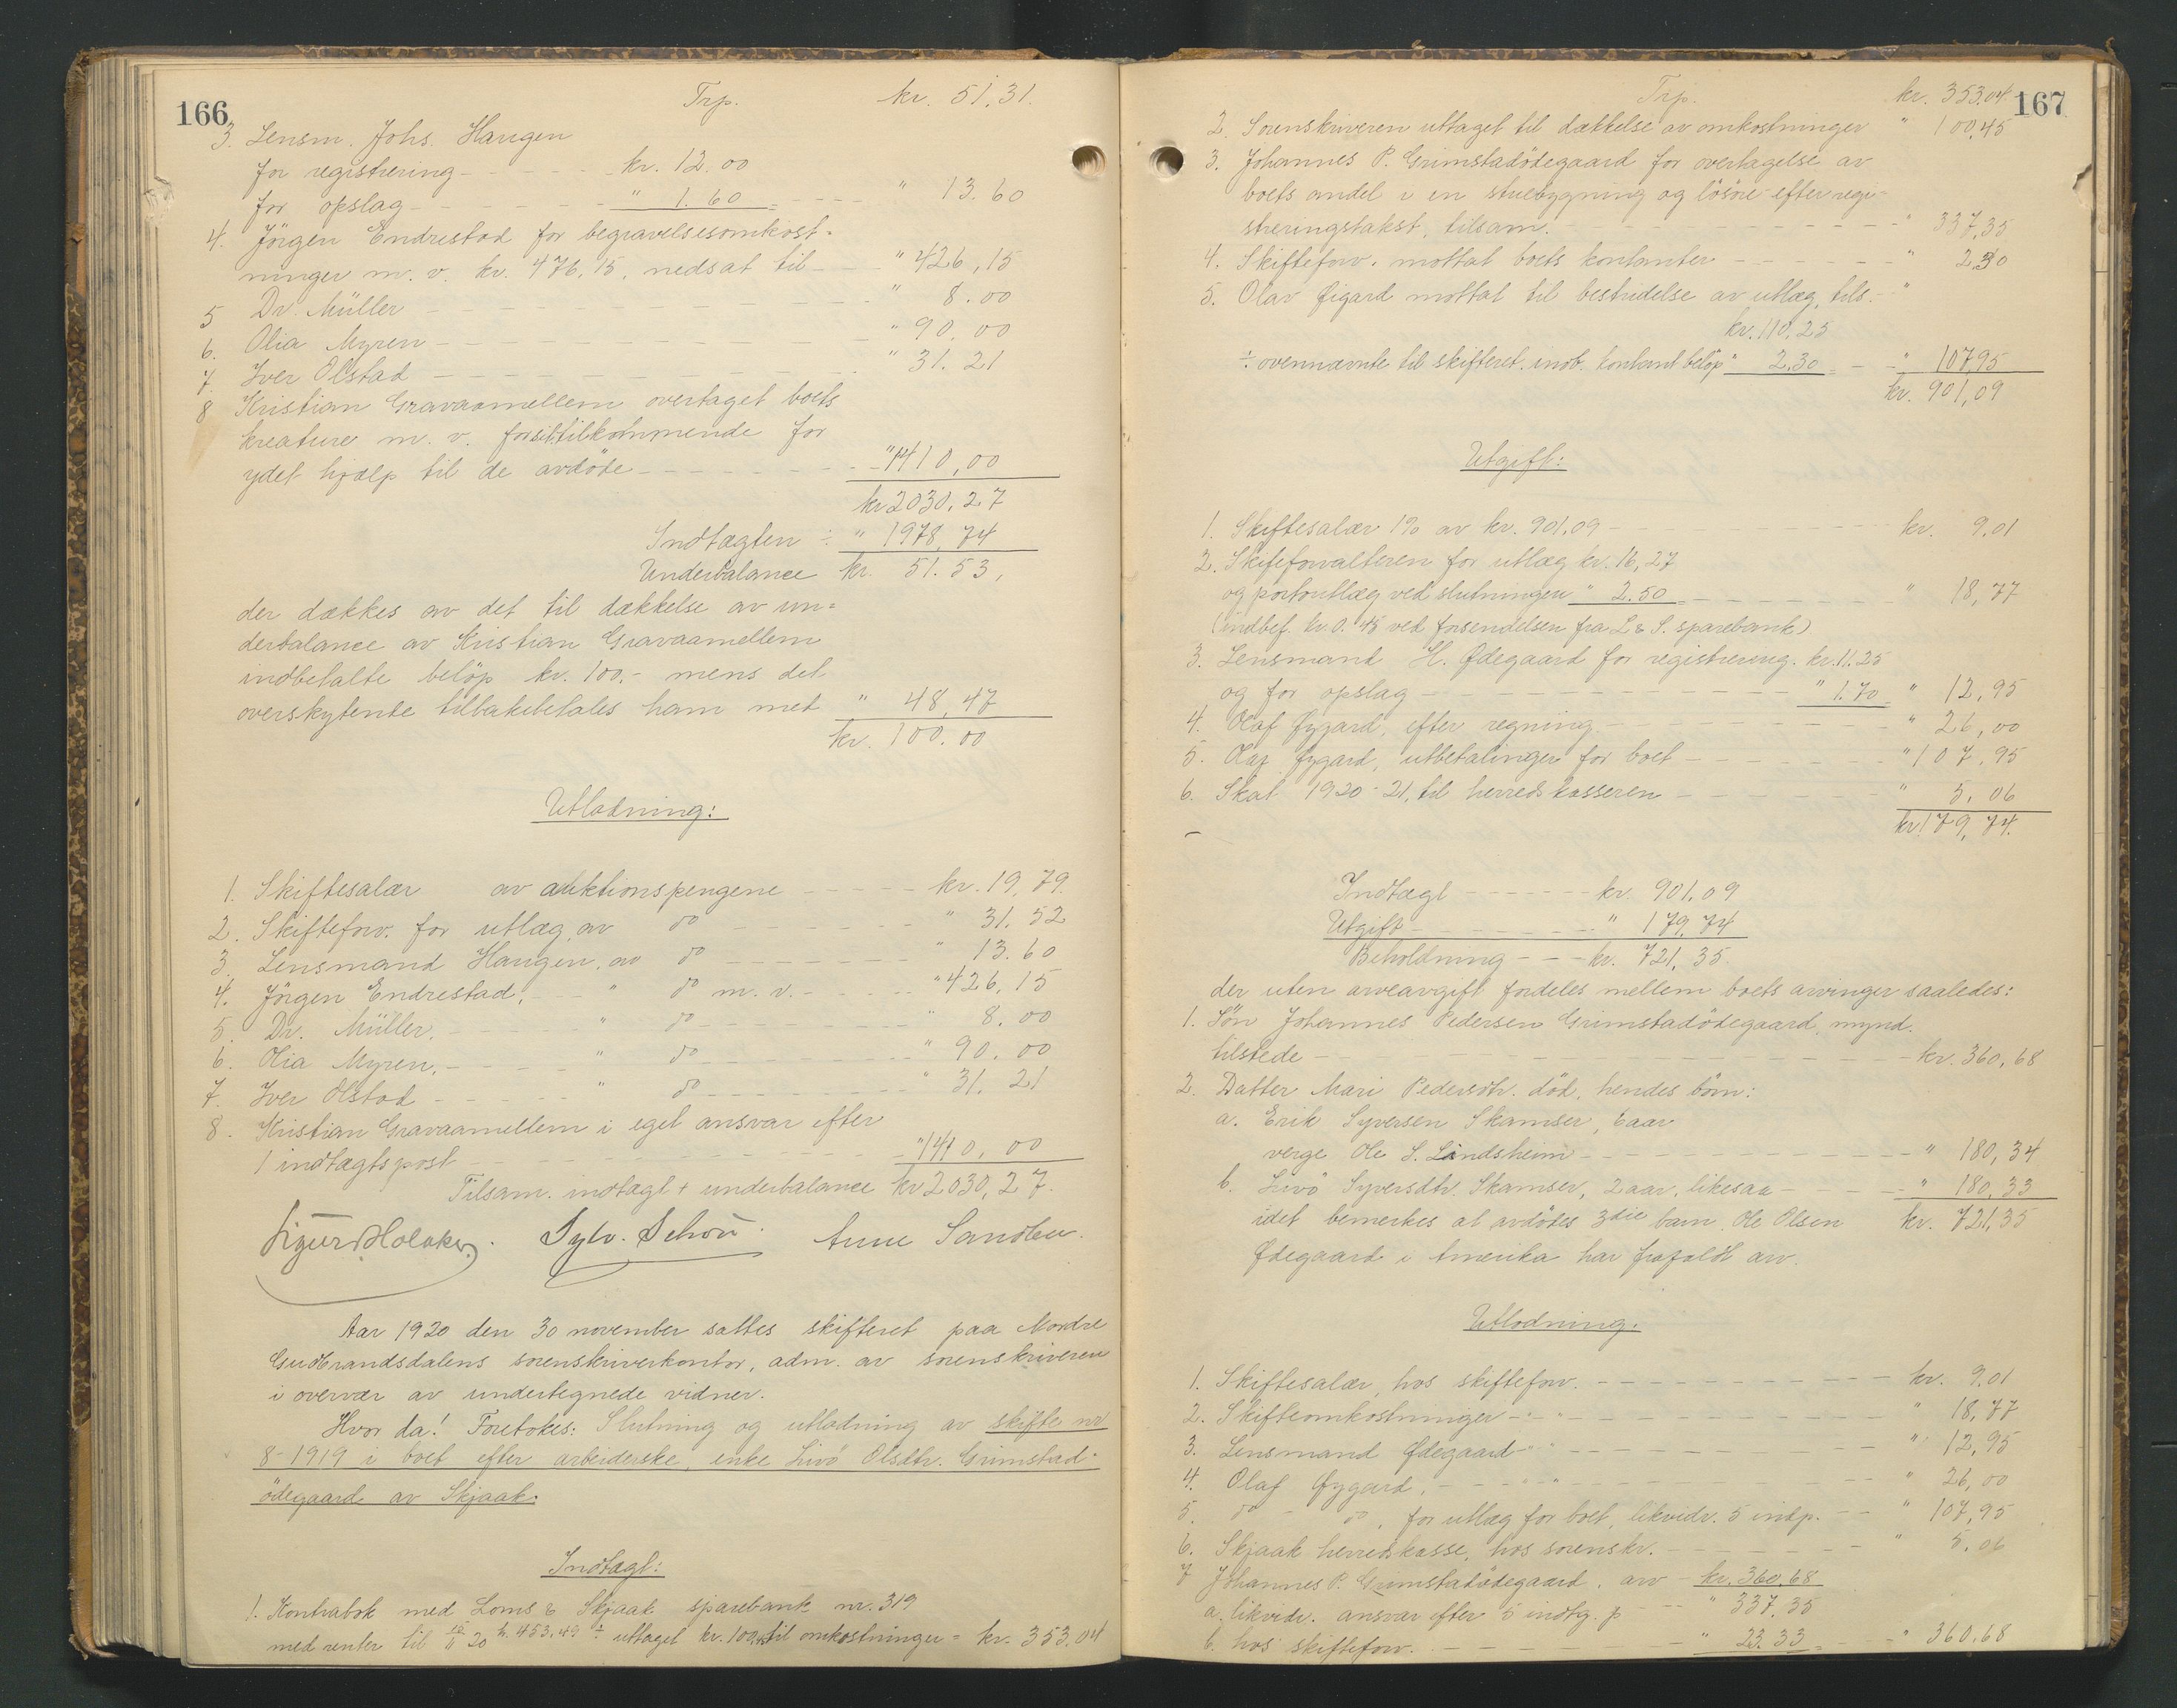 166
Trp. kr. 51.31.
3. Lensm. Johs. Haugen
for registrering kr. 12.00
for opslag " 1.60 " 13.60
4. Jörgen Endrestad for begravelsesomkost-
ninger m. v. kr. 476,15, nedsat til " 426,15
5 Dr. Müller " 8.00
6. Olia Myren " 90.00
7. Iver Olstad " 31.21
8 Kristian Gravaamellem overtaget boets
kreature m. v. for sit tilkommende for
ydet hjælp til de avdöde " 1410,00
kr 2030,27
Indtægten ÷ " 1978,74
Underbalance kr. 51.53,
der dækkes av det til dækkelse av un-
derbalance av Kristian Gravaamellem
indbetalte belöp kr. 100.- mens det
overskytende tilbakebetales ham met " 48,47
kr. 100.00
Utlodning:
1. Skiftesalær av auktionspengene kr. 19,79.
2. Skifteforv. for utlæg, av do " 31.52
3. Lensmand Haugen, av do " 13.60
4. Jörgen Endrestad, " do m. v. " 426,15
5. Dr. Müller, " do " 8.00
6. Olia Myren, " do " 90.00
7. Iver Olstad " do " 31.21
8. Kristian Gravaamellem i eget ansvar efter
1 indtægtspost " 1410,00
Tilsam. indtægt + underbalance kr 2030,27.
Sylv. Schou. Anne Sandbu.
Aar 1920 den 30 november sattes skifteret paa Nordre
Gudbrandsdalens sorenskriverkontor, adm. av sorenskriveren
i overvær av undertegnede vidner.
Hvor da! Foretokes: Slutning og utlodning av skifte nr
8-1919 i boet efter arbeiderske, enke Livö Olsdtr. Grimstad-
ödegaard av Skjaak.
Indtægt:
1. Kontrabok med Loms & Skjaak sparebank nr. 319
med renter til 12/11 20 kr. 453,49 ÷ uttaget kr. 100,45 til omkostninger = kr. 353.04
167
Trp. kr. 353.04
2. Sorenskriveren uttaget til dækkelse av omkostninger " 100,45
3. Johannes P. Grimstadödegaard for overtagelse av
boets andel i en stuebygning og lösöre efter regi-
streringstakst, tilsam. " 337,35
4. Skifteforv. mottat boets kontanter " 2.30
5. Olav Øigard mottat til bestridelse av utlæg, tils. "
kr. 110,25
÷ ovennævnte til skifteret. indb. kontant belöp " 2.30 " 107,95
kr. 901,09
Utgift:
1. Skiftesalær 1% av kr. 901,09 kr. 9,01
2. Skifteforvalteren for utlæg kr. 16,27
og portoutlæg ved slutningen " 2.50 " 18,77
(indbef. kr. 0.45 ved forsendelsen fra L & S. sparebank)
3. Lensmand H. Ødegaard for registrering. kr. 11.25
og for opslag " 1.70 " 12,95
4. Olaf Øygard, efter regning " 26,00
5. Olaf Øygard, utbetalinger for boet " 107,95
6. Skat 1920-21, til herredskasseren " 5,06
kr 179,74.
Indtægt kr. 901,09
Utgift " 179,74
Beholdning kr. 721,35.
der uten arveavgift fordeles mellem boets arvinger saaledes:
1. Sön Johannes Pedersen Grimstadödegaard, mynd.
tilstede kr. 360,68
2. Datter Mari Pedersdtr. död, hendes börn:
a. Erik Syversen Skamser, 6 aar
verge Ole S. Lindsheim " 180,34
b. Livö Syversdtr. Skamser, 2 aar, likesaa " 180,33
idet bemerkes at avdödes 3die barn Ole Olsen kr. 721,35
Ødegaard i Amerika har frafaldt arv.
Utlodning.
1. Skiftesalær, hos skifteforv. kr. 9,01
2. Skifteomkostninger " " 18,77
3. Lensmand Ødegaard " " 12,95
4. Olaf Øygard, " " 26,00
5. do do, for utlæg for boet, likvidr. 5 indp. " 107,95
6. Skjaak herredskasse, hos sorenskr. " 5.06
7 Johannes P. Grimstadödegaard, arv kr. 360,68
a. likvidr. ansvar efter 3 indtg. p " 337.35
b. hos skifteforv. " 23.33 " 360.68